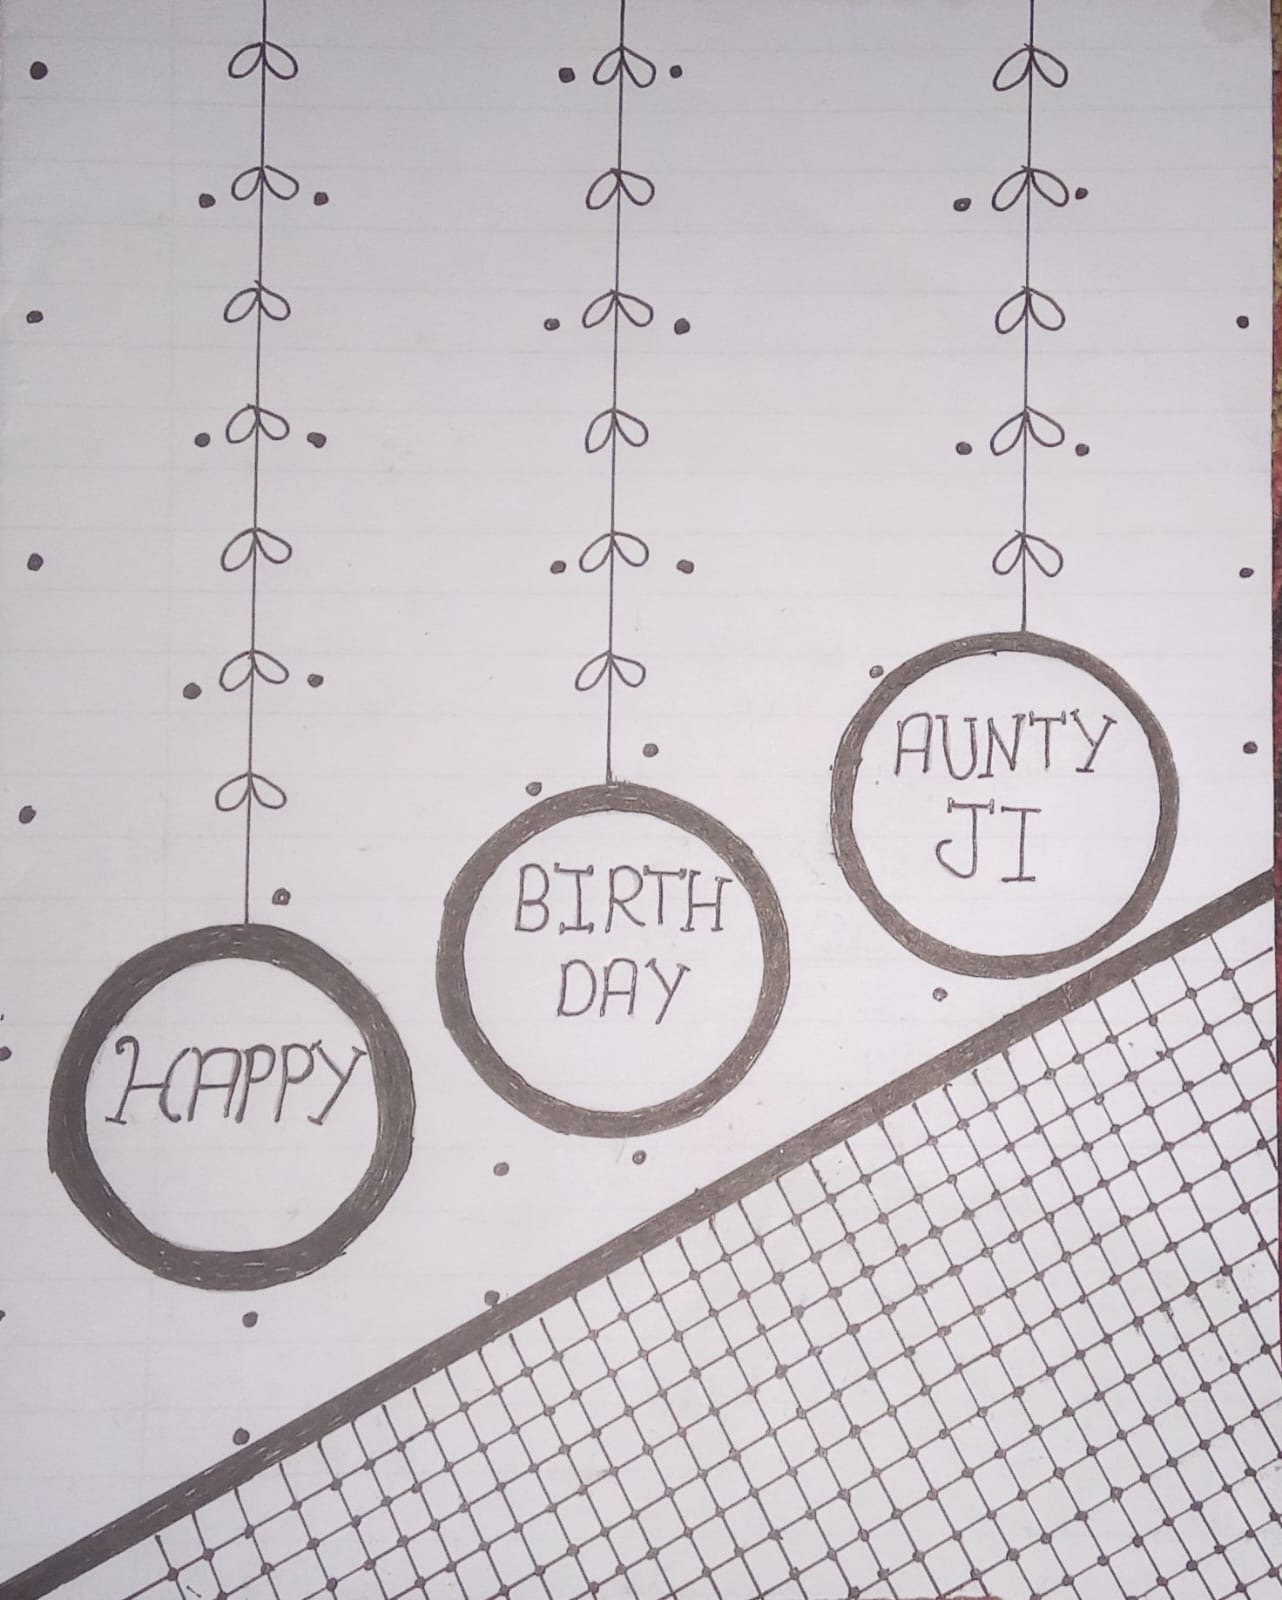 HAPPY
BIRTH
DAY
AUNTY
JI